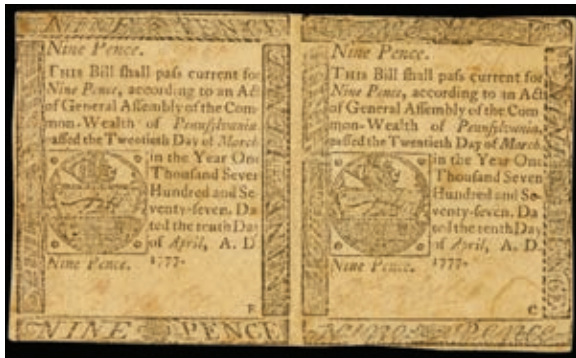 NINE PENCE
Nine Pence.
THIS Bill ſhall paſs current for
Nine Pence, according to an Act
of General Aſſembly of the Com
mon-Wealth of Pennſylvania
paſſed the Twentieth Day of March
in the Year One
Thouſand Seven
Hundred and Se-
venty-ſeven. Da
ted the tenth Day
of April, A. D.
1777.
Nine Pence.
NINE PENCE
Nine Pence.
THIS Bill ſhall paſs current for
Nine Pence, according to an Act
of General Aſſembly of the Com
mon-Wealth of Pennſylvania,
paſſed the Twentieth Day of March
in the Year One
Thouſand Seven
Hundred and Se-
venty-ſeven. Da
ted the tenth Day
of April, A. D.
1777.
Nine Pence.
C
Nine Pence